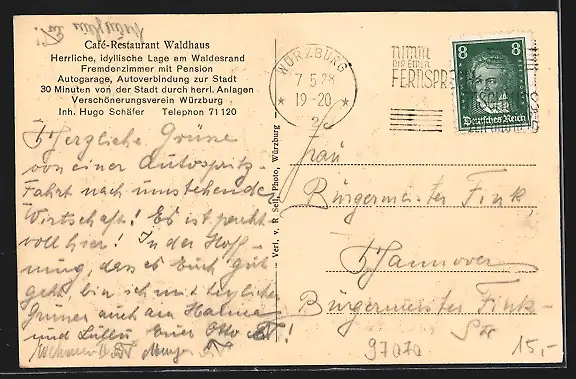 Café-Restaurant Waldhaus
Herrliche, idyllische Lage am Waldesrand
Fremdenzimmer mit Pension
Autogarage, Autoverbindung zur Stadt
30 Minuten von der Stadt durch herrl. Anlagen
Verschönerungsverein Würzburg
Inh. Hugo Schäfer Telephon 71120
Herzliche Grüsse
von einer Autospritz-
Fahrt nach umstehender
Wirtschaft! Es ist pracht-
voll hier! In der Hoff-
nung, dass es Euch gut
geht, bin ich mit herzlichen
Grüssen auch an
und Euer Otto
Verl. v. R. Photo, Würzburg
WÜRZBURG
7.5.28
19-20
* 2 *
NIMM
DIR EINEN
FERNSPR
8 8
Deutsches Reich
Frau
Bürgermeister Fink,
Hannover
Bürgermeister Fink-
Str
97070
15,-